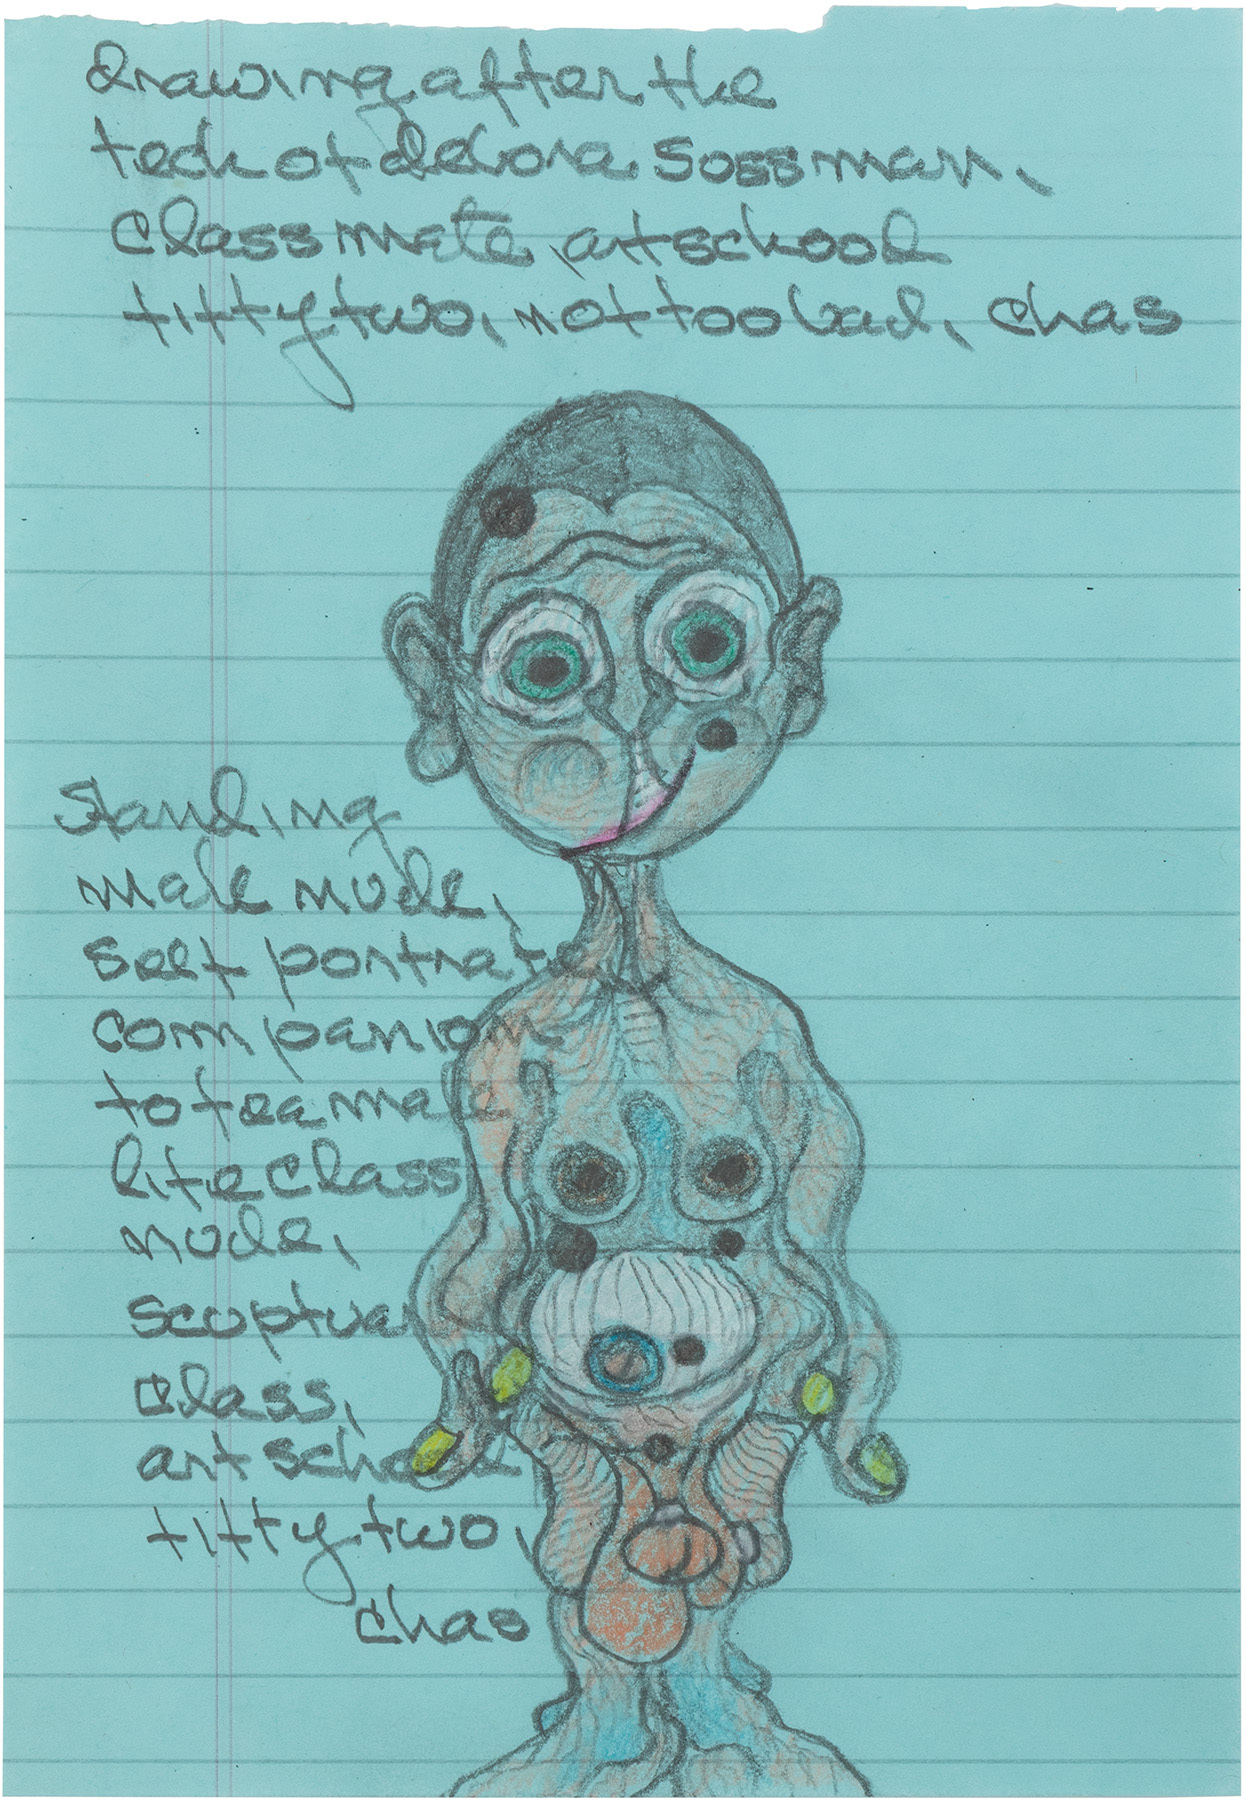 drawing after the
tech of debora Sossman,
Classmate, art school
fifty two, not too bad, Chas
Standing
male nude,
self portrat
companion
to feamale
life Class
nude,
Class,
art school
fifty two,
Chas